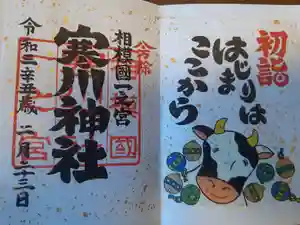 初詣
はじまりは
ここから
相模國一之宮
寒川神社
令和三辛丑歳 二月二十三日